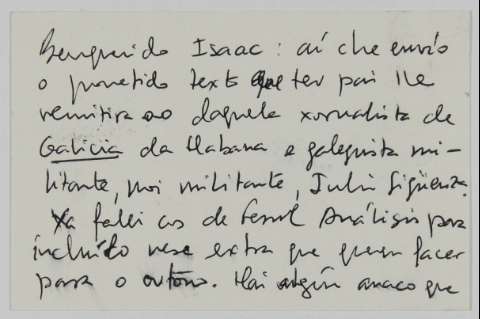 Benquerido Isaac: aí che envío
o prometido texto que teu pai lle
remitira ao daquela xornalista de
Galicia da Habana e galeguista mi-
litante, moi militante, Julio Sigüenza.
Xa falei cos de Análisis para
incluílo nese extra que queren facer
para o outono. Hai algún anaco que